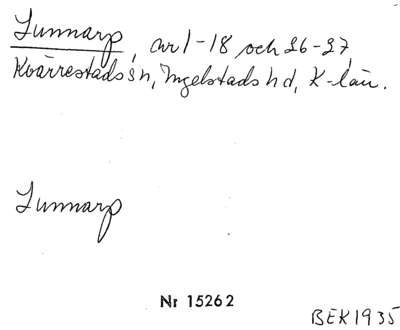 Sunnarp, nr 1-18 och 26-27,
Kvärrestads sn, Ingelstads hd, K-län.
Sunnarp
Nr 15262
BEK 1935